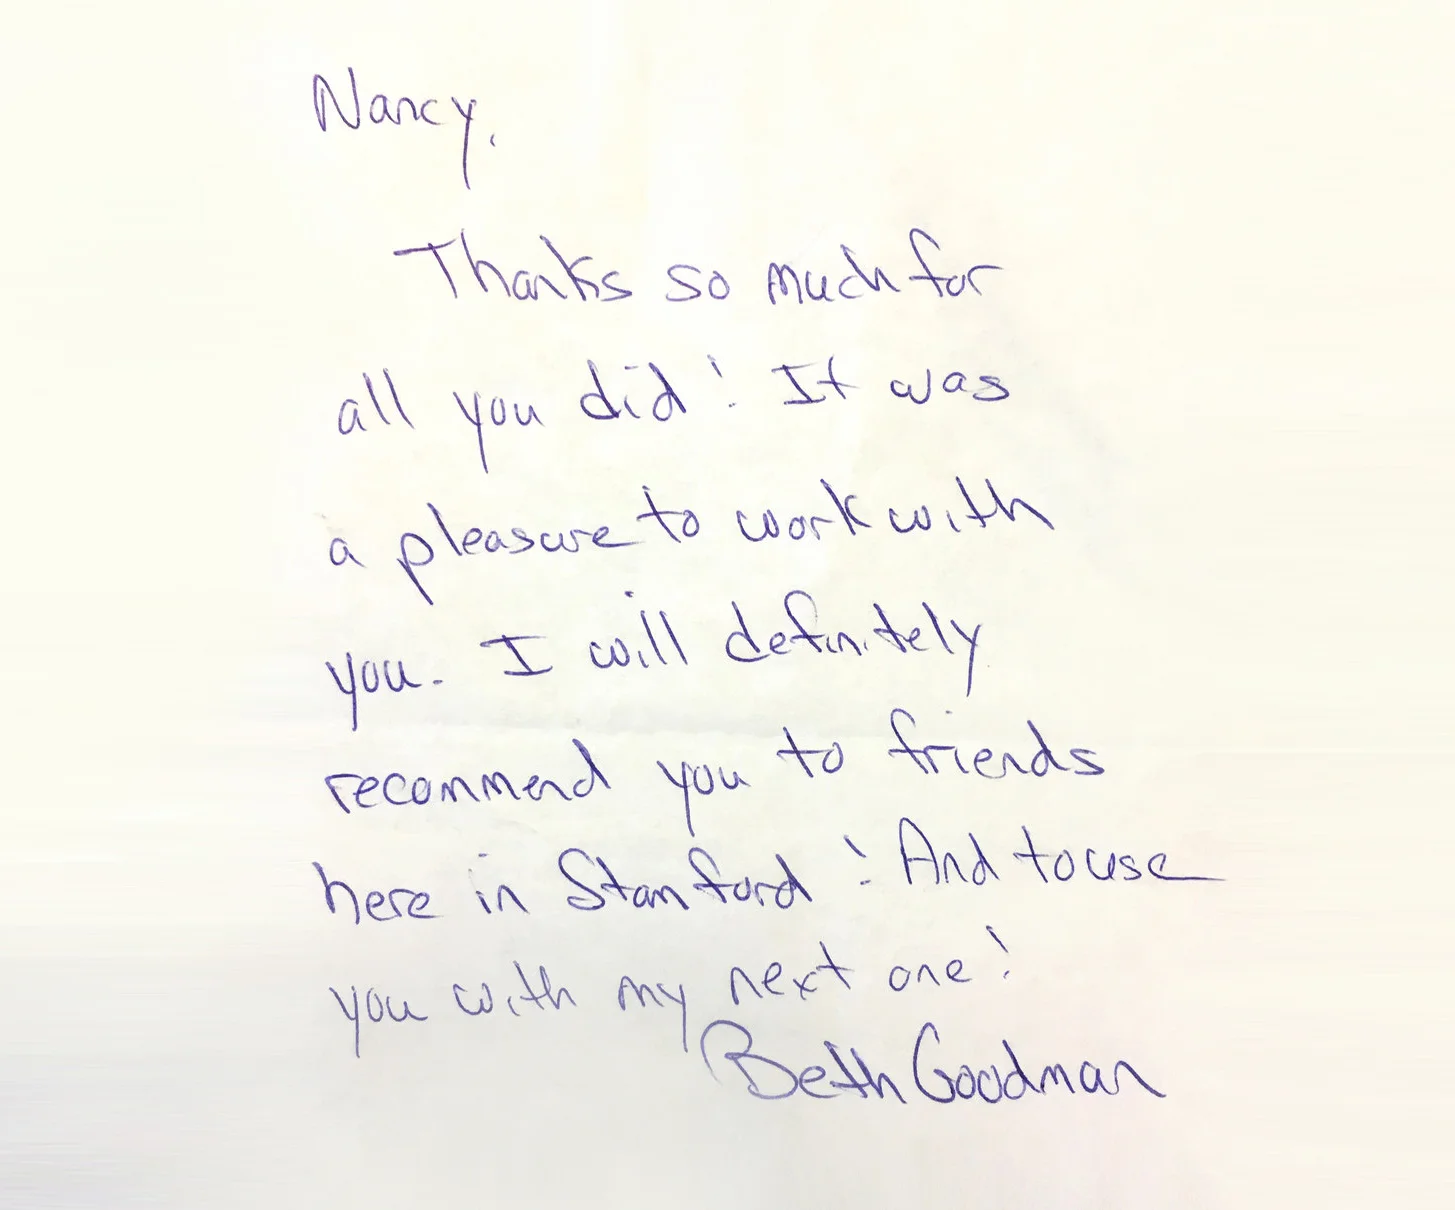 Nancy,
Thanks so much for
all you did! It was
a pleasure to work with
you. I will definitely
recommend you to friends
here in Stamford! And to use
you with my next one!
Beth Goodman